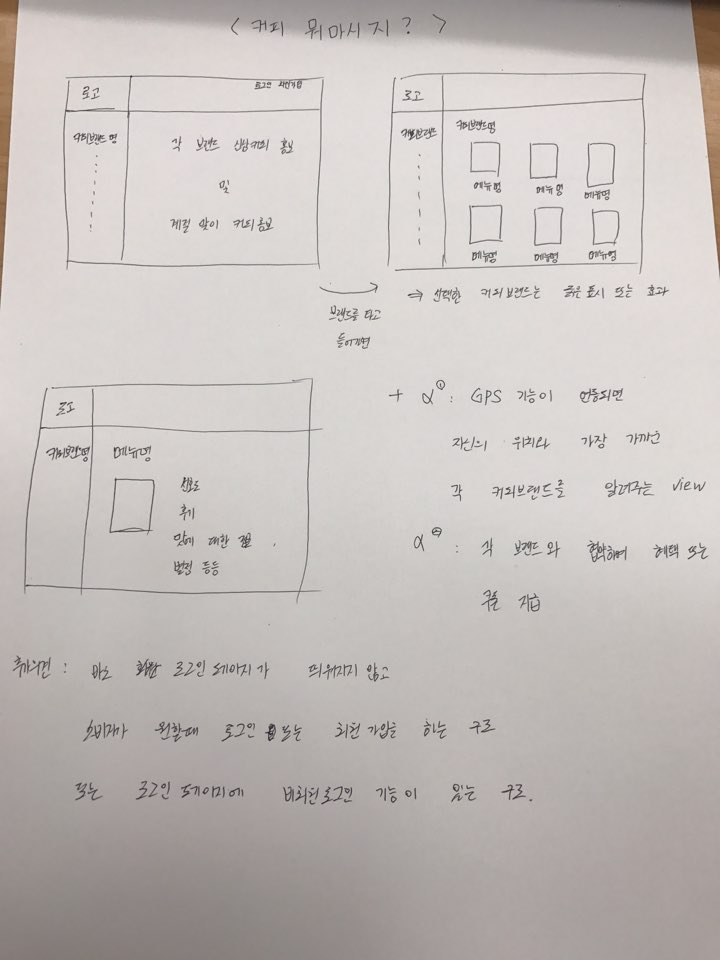 < 커피 뭐마시지? >
로고
로그인 회원가입
커피브랜드명
각 브랜드 신상커피 홍보
및
계절 맞이 커피홍보
브랜드를 타고
들어가면
로고
커피브랜드
커피브랜드명
메뉴명 메뉴명 메뉴명
메뉴명 메뉴명 메뉴명
⇒ 선택한 커피브랜드는 굵은표시 또는 효과
로고
커피브랜드명
메뉴명
선호도
후기
맛에 대한
별점 등등
+ α①: GPS 기능이 연동되면
자신의 위치와 가장 가까운
각 커피브랜드를 알려주는 view
α②: 각 브랜드와 협약하여 혜택 또는
쿠폰 지급
추가의견: 바로 로그인 페이지가 띄워지지 않고
소비자가 원할때 로그인 또는 회원가입을 하는 구조
또는 로그인 페이지에 비회원로그인 기능이 있는 구조.